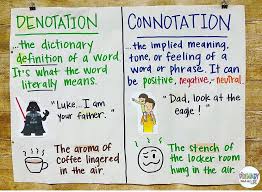 DENOTATION
...the dictionary
definition of a word.
It's what the word
literally means.
"Luke...I am
your father."
The aroma of
coffee lingered
in the air.
CONNOTATION
...the implied meaning,
tone, or feeling of a
word or phrase. It can
be positive, negative, neutral.
"Dad, look at the
eagle!"
The stench of
the locker room
hung in the air.